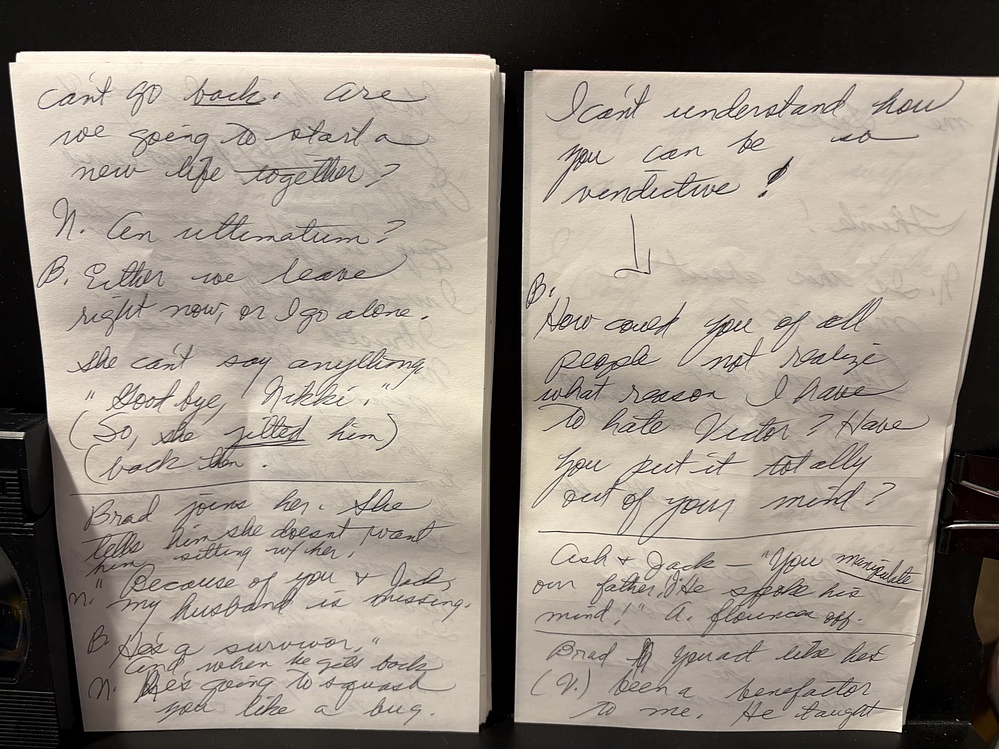 can't go back. Are
we going to start a
new life together?
N. An ultimatum?
B. Either we leave
right now, or I go alone.
She can't say anything.
"Good bye, Nikki."
(So, she jilted him)
(back then.
Brad joins her. She
tells him she doesnt want
him sitting w/ her.
N. "Because of you & Jack,
my husband is missing.
B. He's a survivor,"
and when he gets back
N. He's going to squash
you like a bug.
I can't understand how
you can be so
vendictive!
B.
How could you of all
people not realize
what reason I have
to hate Victor? Have
you put it totally
out of your mind?
Ash & Jack — "You manipulate
our father." "He spoke his
mind!" A. flounces off.
Brad you act like he's
(V.) been a benefactor
to me. He taught